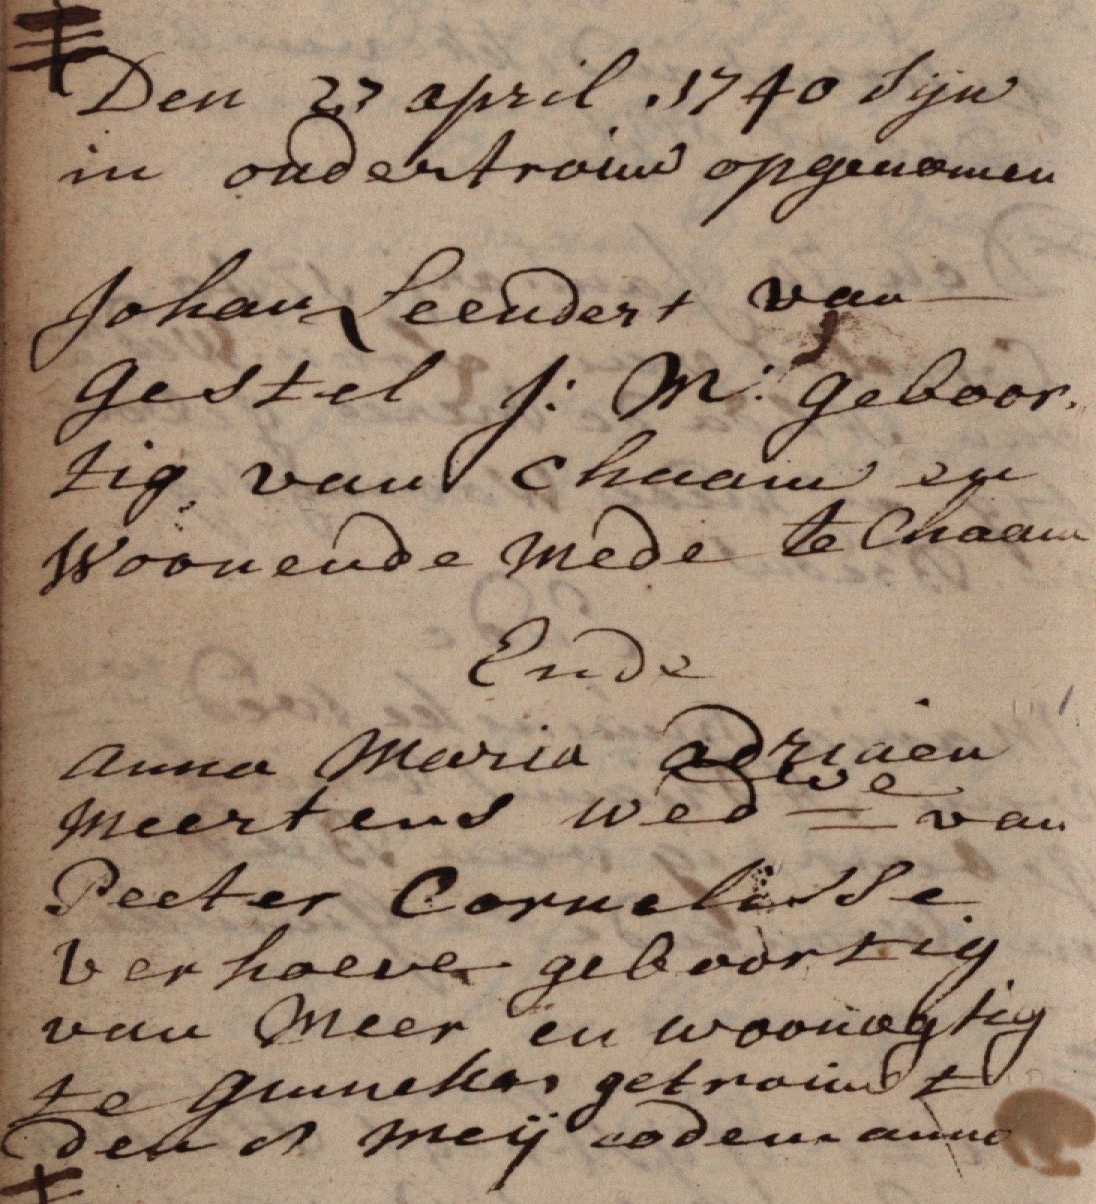 Den 23 april 1740 Sijn
in ondertrouw opgenomen
Johan Leendert van
Gestel J: M: geboor
tig van Chaam en
Woonende mede te Chaam
Ende
Anna Maria Adriaen
Meertens wed we van
Peeter Cornelisse
Verhoeve geboortig
van Meer en woonagtig
te Ginneken getrouwt
den 8 meij eodem anno